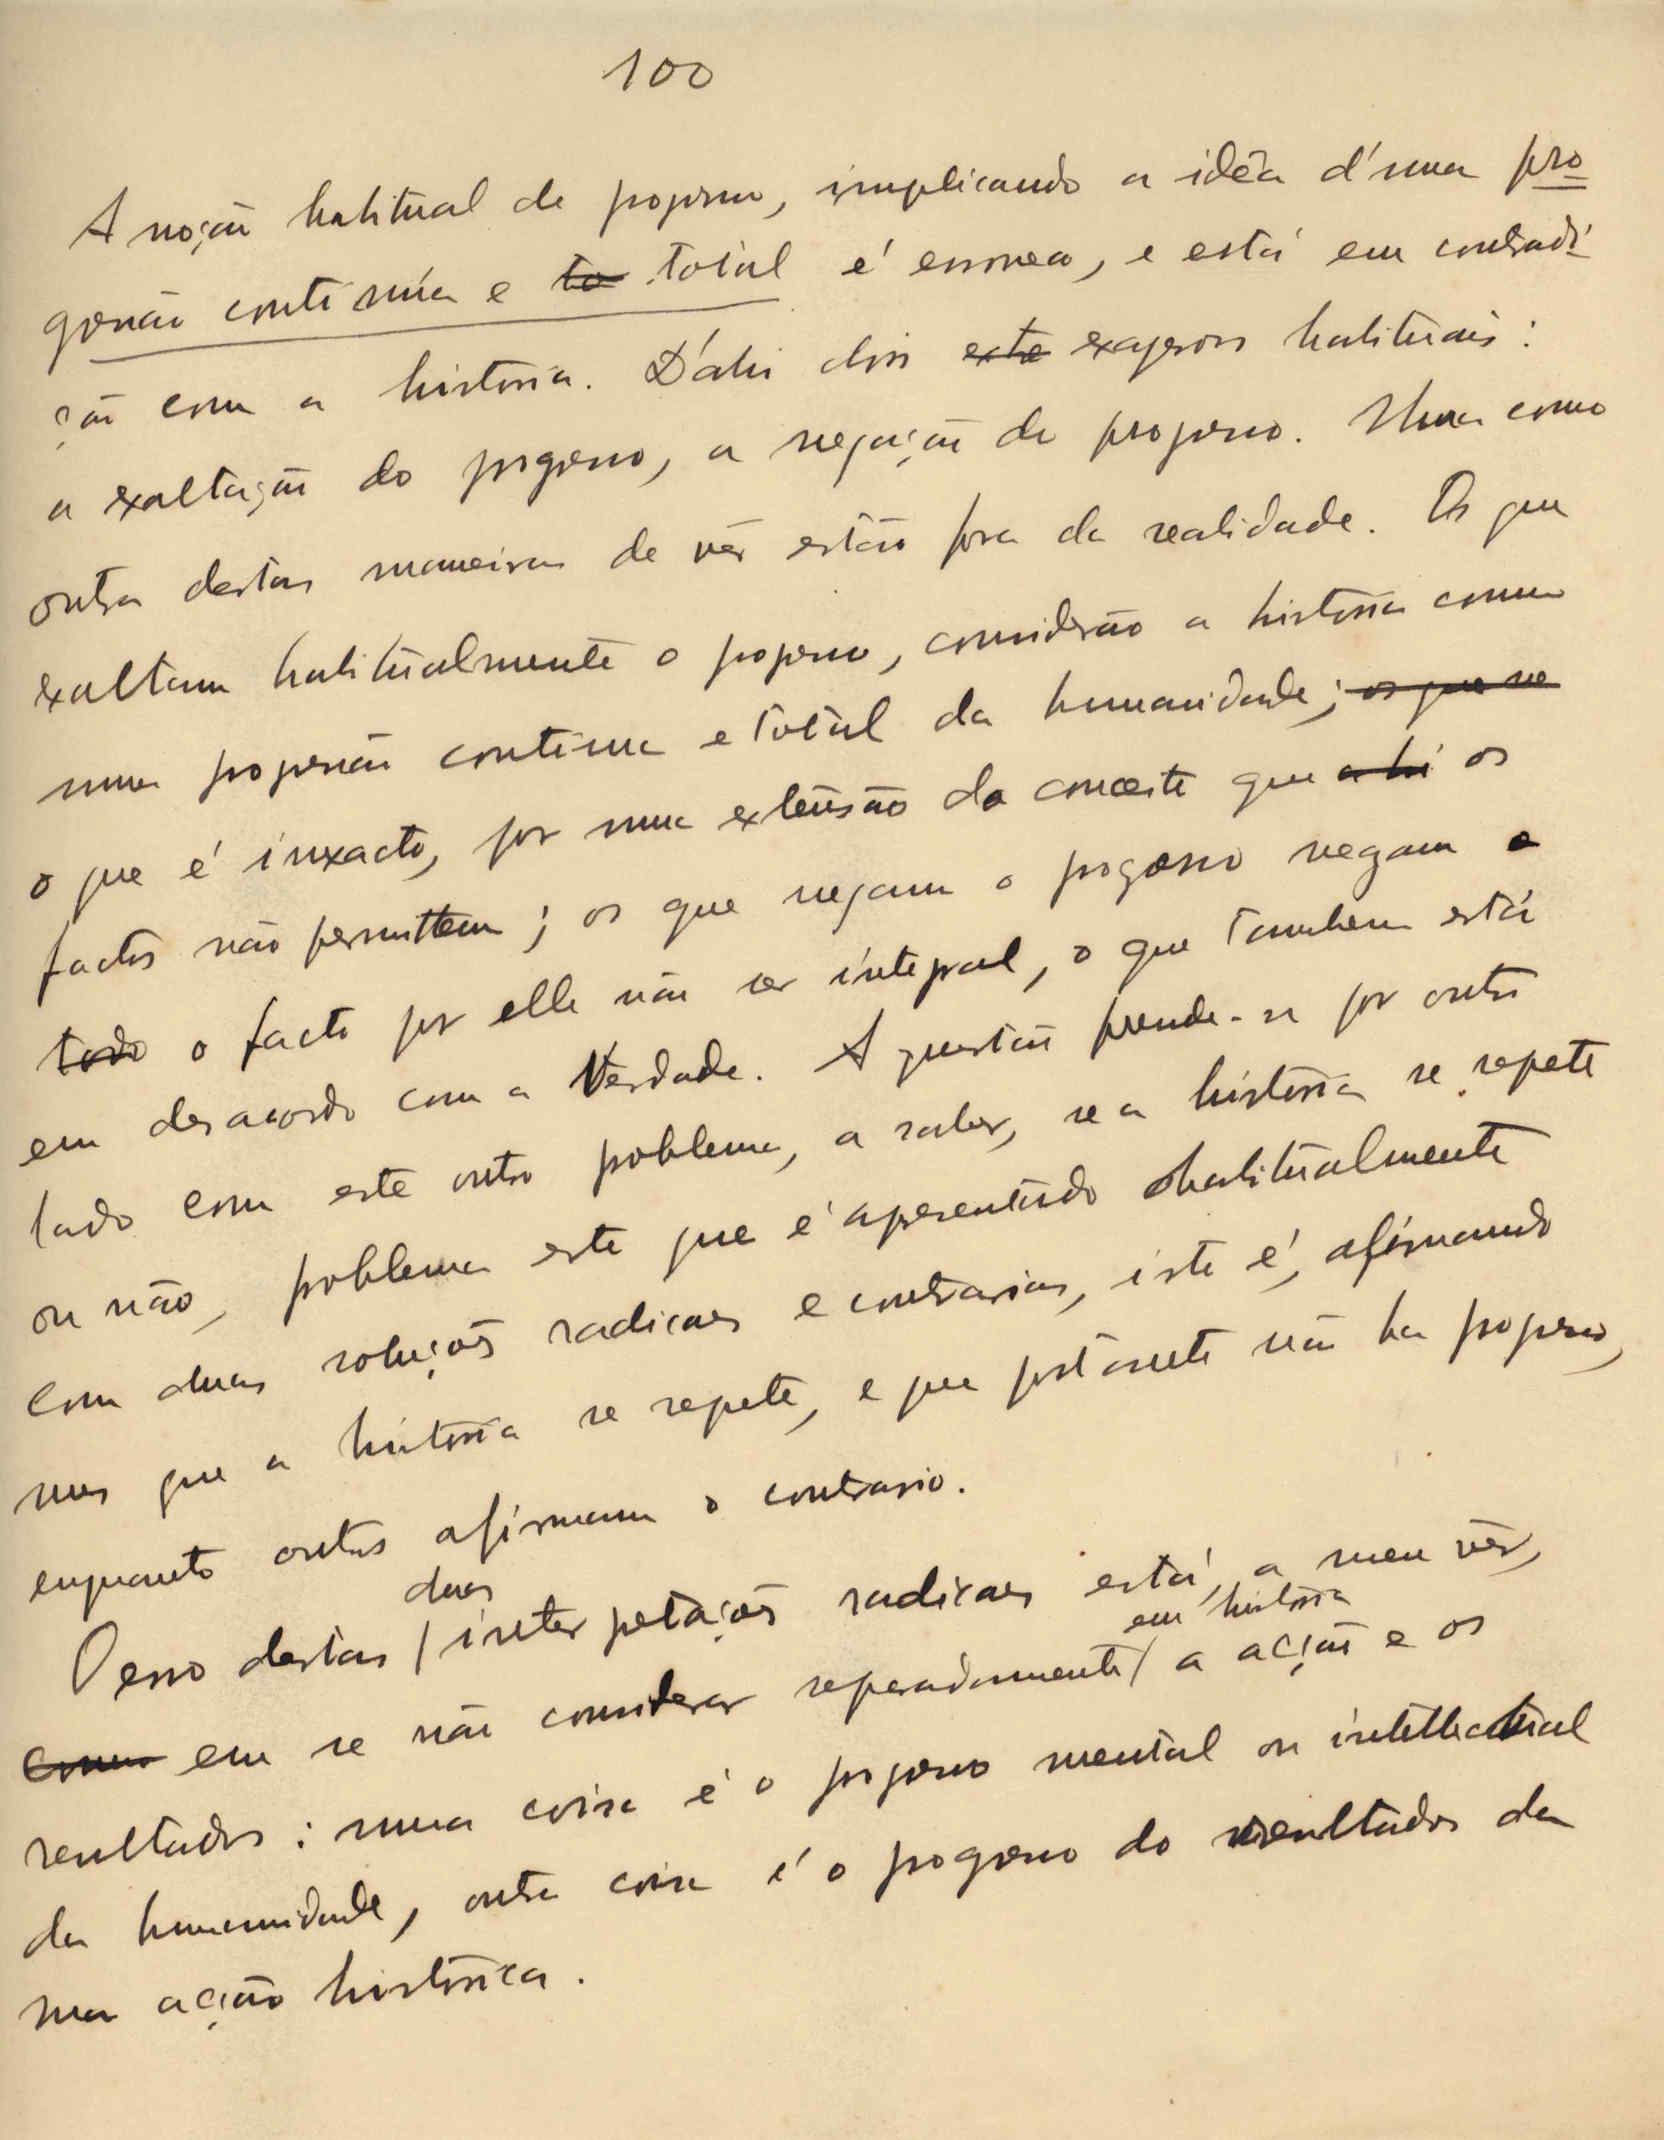 100
A noção habitual de progresso, implicando a idéa d'uma pro
gressão continúa e to total é erronea, e está em contradi-
ção com a historia. D'ahi dois exte exageros habituais:
a exaltação do progresso, a negação do progresso. Uma como
outra destas maneiras de vêr estão fora da realidade. Os que
exaltam habitualmente o progresso, considerão a historia como
uma progressão continua e total da humanidade; os que ne
o que é inexacto, por uma extensão do conceito que a hi os
factos não permittem; os que negam o progresso negam o
todo o facto por elle não ser integral, o que tambem está
em desacordo com a Verdade. A questão prende-se por outro
lado com este outro problema, a saber, se a historia se repete
ou não, problema este que é apresentado habitualmente
com duas soluções radicaes e contrarias, isto é, afirmando
uns que a historia se repete, e que portanto não ha progresso,
enquanto outros afirmam o contrario.
duas
O erro destas / interpretações radicaes está, a meu vêr,
em historia
como em se não considerar separadamente / a acção e os
resultados: uma coisa é o progresso mental ou intellectual
da humanidade, outra coisa é o progresso do resultados da
sua acção historica.